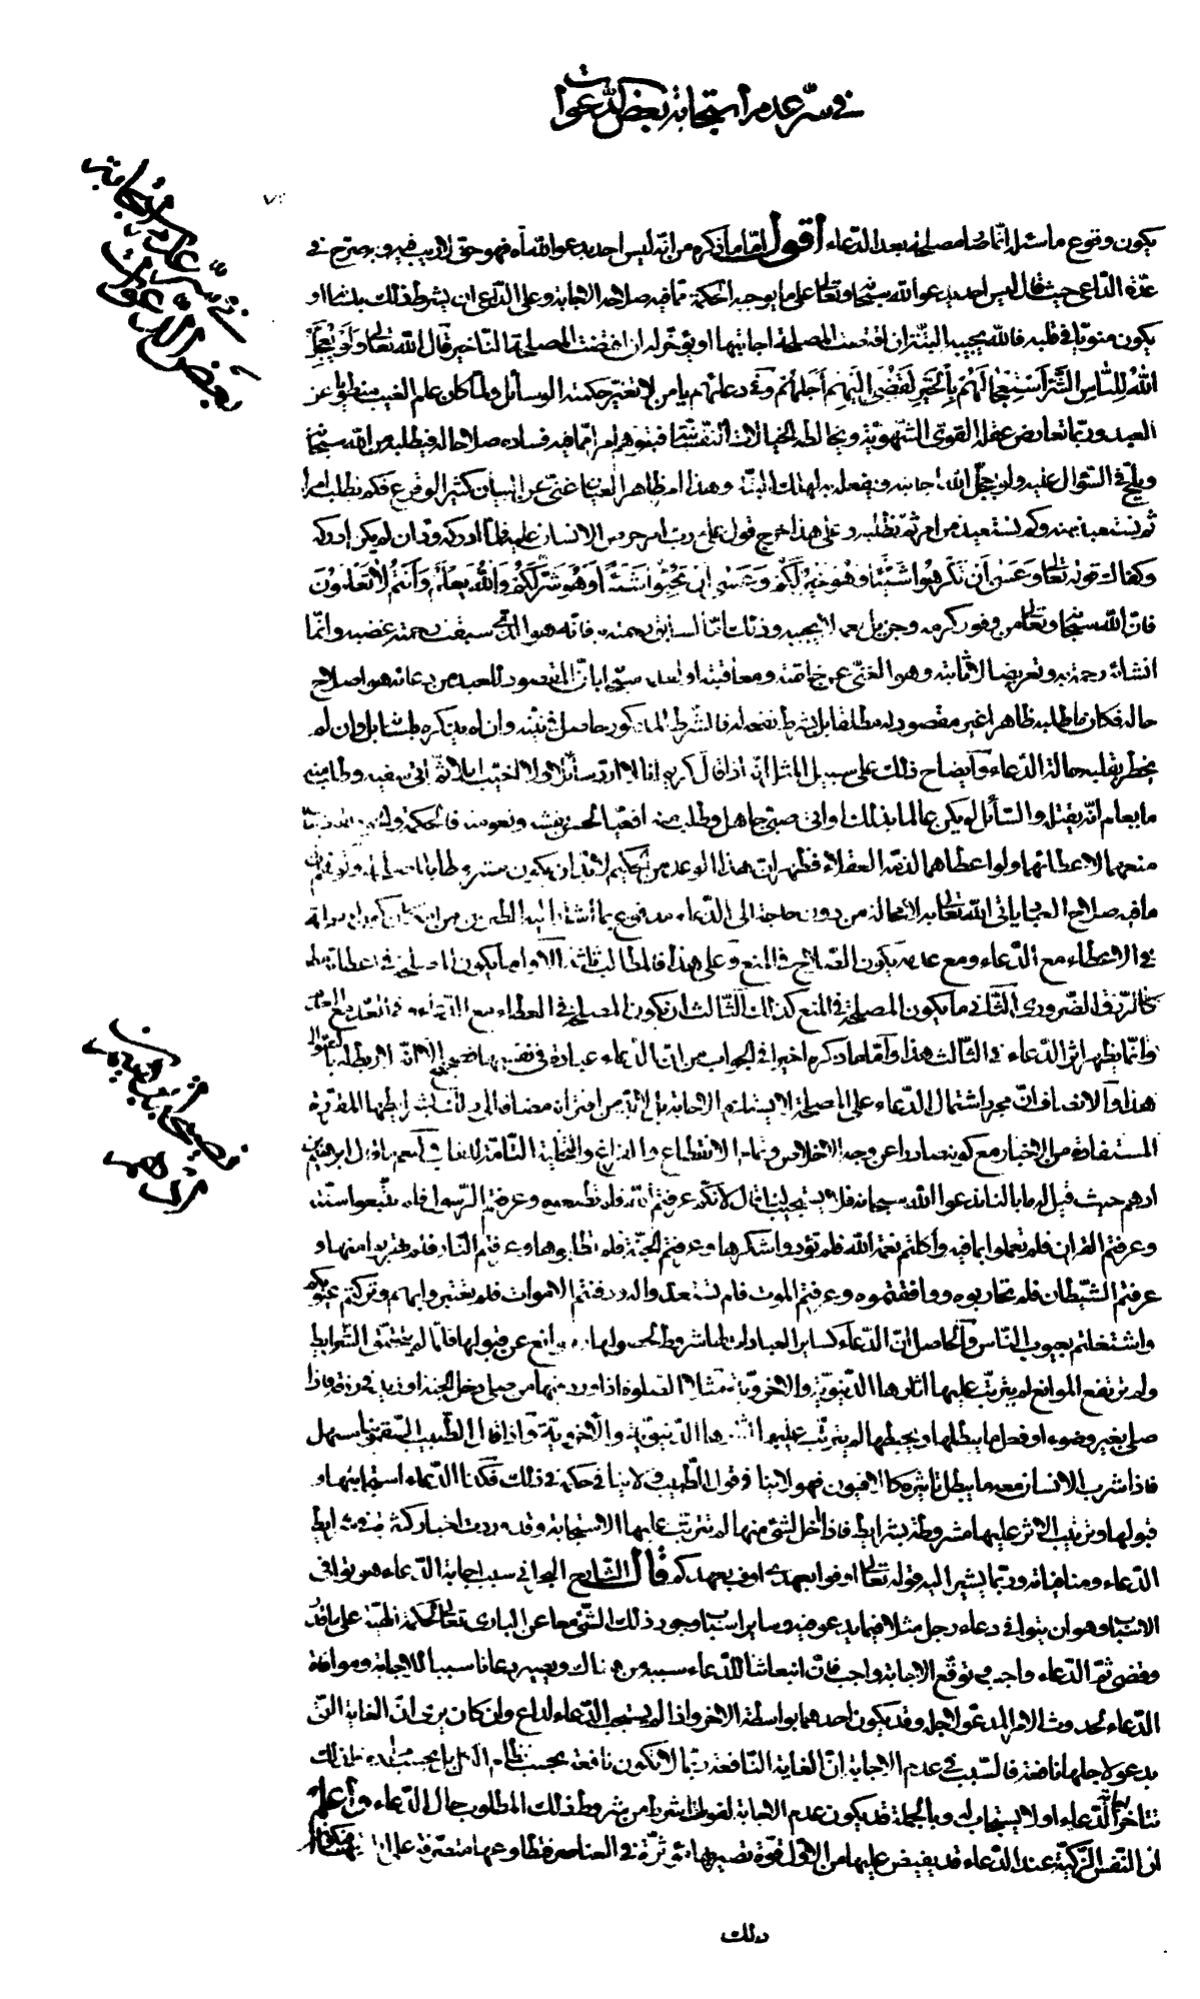 في سر عدم استجابة بعض الدعوات
في سر عدم استجابة
بعض الدعوات
يكون وقوع ما سئل انما صار مصلحة بعد الدعاء أقول اما ما ذكره من انه ليس احد يدعو الله انه فهو حق لا ريب فيه وبه صرح في
عدة الداعي حيث قال ليس احد يدعو الله سبحانه وتعالى على ما يوجبه الحكمة مما فيه صلاحه الا اجابه وعلى الداعي ان يشترط ذلك بلسانه او
يكون منويا في قلبه فالله يجيبه البتة ان اقتضت المصلحة اجابتها او يؤخر له ان اقتضت المصلحة التاخير قال الله تعالى ولو يعجل
الله للناس الشر استعجالهم بالخير لقضي اليهم اجلهم وفي دعائهم يا من لا تغير حكمته الوسائل ولما كان علم الغيب منطويا عن
العبد وربما تعارض عقله القوى الشهوية ويخالطه الخيالات النفسانية فيتوهم امرا مما فيه فساده صلاحا له فيطلبه من الله سبحانه
ويلح في السؤال عليه ولو يعجل الله اجابته ويفعله به لهلك البتة وهذا امر ظاهر العيان غني عن البيان كثير الوقوع فكم نطلب امرا
ثم نستعيذ منه وكم نستعيذ من امر ثم نطلبه وعلى هذا خرج قول علي رب امر حرص الانسان عليه فلما ادركه ود ان لم يكن ادركه
وكفاك قوله تعالى وعسى ان تكرهوا شيئا وهو خير لكم وعسى ان تحبوا شيئا وهو شر لكم والله يعلم وانتم لا تعلمون
فان الله سبحانه وتعالى من وفور كرمه وجزيل نعمه لا يجيبه وذلك اما لسابق رحمته به فانه هو الذي سبقت رحمته غضبه وانما
انشاه رحمة به وتعريضا لاثابته وهو الغني عن خلقه ومعاقبته او لعلمه سبحانه بان المقصود للعبد من دعائه هو اصلاح
حاله فكان ما طلبه ظاهرا غير مقصود له مطلقا بل بشرط نفعه له فالشرط المذكور حاصل في نيته وان لم يذكره بلسانه بل وان لم
يخطر بقلبه حالة الدعاء وايضاح ذلك على سبيل المثل انه اذا قال كريم انا لا ارد سائلا ولا اخيب املا ثم اتى سفيه وطلب منه
ما يعلم انه يقتله والسائل لم يكن عالما بذلك او اتى صبي جاهل وطلب منه افعيا لحسن نقشه ونعومته فالحكمة والجود يقتضيان
منعهما لا اعطائهما ولو اعطاهما لذمه العقلاء فظهر ان هذا الوعد من الحكيم لا بد ان يكون مشروطا
ما فيه صلاح العباد ياتي الله تعالى به لا محالة من دون حاجة الى الدعاء مدفوع بما اشار اليه
في الاعطاء مع الدعاء ومع عدمه يكون الصلاح في المنع وعلى هذا فالمطالب ثلثة الاول ما يكون المصلحة في اعطائه
كالرزق الضروري الثاني ما يكون المصلحة في المنع كذلك الثالث ان تكون المصلحة في العطاء مع الدعاء
وانما يظهر اثر الدعاء في الثالث هذا واما ما ذكره اخيرا في الجواب من ان الدعاء عبادة في نفسها صحيح الا انه لا ربط له بالسؤال
هذا والانصاف ان مجرد اشتمال الدعاء على المصلحة لا يستلزم الاجابة بل لا بد من اقترانه مضافا الى ذلك بشرايطها المقررة
المستفادة من الاخبار مع كونه صادرا عن وجه الاخلاص وتمام الانقطاع والتضرع والمحبة التامة ابراهيم بن
ادهم حيث قيل له ما بالنا ندعوا الله سبحانه فلا يستجيب لنا قال لانكم عرفتم الله فلم تطيعوه وعرفتم الرسول فلم تتبعوا سنته
وعرفتم القران فلم تعملوا بما فيه واكلتم نعمة الله فلم تؤدوا شكرها وعرفتم الجنة فلم تطلبوها وعرفتم النار فلم تهربوا منها و
عرفتم الشيطان فلم تحاربوه ووافقتموه وعرفتم الموت فلم تستعدوا له ودفنتم الاموات فلم تعتبروا بهم وتركتم عيوبكم
واشتغلتم بعيوب الناس والحاصل ان الدعاء كساير العبادات لها شروط لحصولها وموانع عن قبولها فلما لم يتحقق الشرايط
ولم يرتفع الموانع لم يترتب عليها اثارها الدنيوية والاخروية مثلا الصلوة اذا ورد فيها من صلى دخل الجنة او زيد في رزقه فاذا
صلى بغير وضوء او فعل ما يبطلها ويحبطها لم يترتب عليها اثارها الدنيوية والاخروية واذا قال الطبيب السقمونيا مسهل
فاذا شرب الانسان معه ما يبطل تاثيره كالافيون فهو لا ينافي قول الطبيب ولا ينافي حكمه في ذلك فكذا الدعاء استجابتها و
قبولها وترتب الاثر عليها مشروطة بشرايط فاذا اخل بشئ منها لم تترتب عليها الاستجابة وقد وردت اخبار كثيرة في شرايط
الدعاء ومنافياته وربما يشير اليه قوله تعالى اوفوا بعهدي اوف بعهدكم قال الشارح البحراني سبب اجابة الدعاء هو توافي
الاسباب وهو ان يتوافي دعاء رجل مثلا فيما يدعو فيه وساير اسباب وجود ذلك الشئ معا عن الباري تعالى لحكمة الهية على ما قدر
وقضى ثم الدعاء واجب وتوقع الاجابة واجب فان انبعاثنا للدعاء سببه من هناك ويصير دعائنا سببا للاجابة وموافاة
الدعاء لحدوث الامر المدعو لاجله وقد يكون احدهما بواسطة الاخر واذا لم يستجب الدعاء لداع وان كان يرى ان الغاية التي
يدعو لاجلها نافعة فالسبب في عدم الاجابة ان الغاية النافعة ربما لا تكون نافعة بحسب نظام الكل بل بحسب مراده فلذلك
تتاخر اجابة الدعاء او لا يستجاب له وبالجملة قد يكون عدم الاجابة لفوات شرط من شروط ذلك المطلوب حال الدعاء واعلم
ان النفس الزكية عند الدعاء قد يفيض عليها من الاول قوة تصير بها مؤثرة في العناصر فتطاوعها متصرفة على ارادتها
ذلك
قصة جواب ابراهيم بن
ادهم